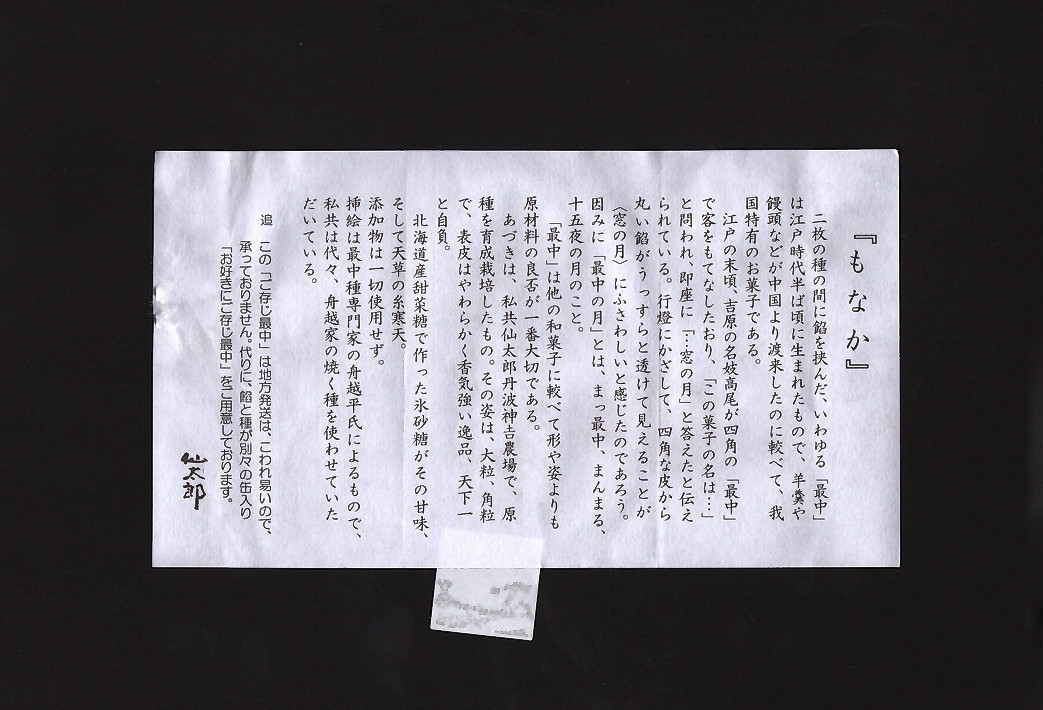 『もなか』
二枚の種の間に餡を挟んだ、いわゆる「最中」
は江戸時代半ば頃に生まれたもので、羊羹や
饅頭などが中国より渡来したのに較べて、我
国特有のお菓子である。
江戸の末頃、吉原の名妓高尾が四角の「最中」
で客をもてなしたおり、「この菓子の名は…」
と問われ、即座に「…窓の月」と答えたと伝え
られている。行燈にかざして、四角な皮から
丸い餡がうっすらと透けて見えることが
〈窓の月〉にふさわしいと感じたのであろう。
因みに「最中の月」とは、まっ最中、まんまる、
十五夜の月のこと。
「最中」は他の和菓子に較べて形や姿よりも
原材料の良否が一番大切である。
あづきは、私共仙太郎丹波神吉農場で、原
種を育成栽培したもの。その姿は、大粒、角粒
で、表皮はやわらかく香気強い逸品、天下一
と自負。
北海道産甜菜糖で作った氷砂糖がその甘味、
そして天草の糸寒天。
添加物は一切使用せず。
挿絵は最中種専門家の舟越平氏によるもので、
私共は代々、舟越家の焼く種を使わせていた
だいている。
追 この「ご存じ最中」は地方発送は、こわれ易いので、
承っておりません。代りに、餡と種が別々の缶入り
「お好きにご存じ最中」をご用意しております。
仙太郎